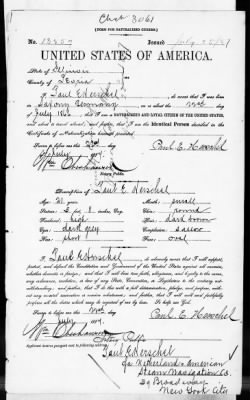 Chat 3061
[FORM FOR NATURALIZED CITIZEN.]
No. Issued July
UNITED STATES OF AMERICA.
State of Illinois
County of Peoria
I, Paul E Herschel, do swear that I was born
in Saxony Germany on or about the 22nd day
of July ; that I am a NATURALIZED AND LOYAL CITIZEN OF THE UNITED STATES,
and about to travel abroad; and further, that I am the Identical Person described in the
Certificate of Naturalization herewith presented.
Sworn to before me this day
Paul E. Herschel
Notary Public.
Description of Paul E. Herschel
Age: 21 years Mouth: small
Stature: 5 feet 8 inches, Eng. Chin: round
Forehead: high Hair: dark brown
Eyes: dark grey Complexion:
Nose: short Face: oval
I, Paul E Herschel, do solemnly swear that I will support,
protect, and defend the Constitution and Government of the United States against all enemies,
whether domestic or foreign; and that I will bear true faith, allegiance, and loyalty to the same,
any ordinance, resolution, or law of any State, Convention, or Legislature to the contrary not-
withstanding; and further, that I do this with a full determination, pledge, and purpose, with-
out any mental reservation or evasion whatsoever; and further, that I will well and faithfully
perform all the duties which may be required of me by law. So help me God.
Sworn to before me this day
Paul E. Herschel
of July
Notary Public
Applicant desires passport sent to following address:
Paul E Herschel
c/o Netherland American
Steam Navigation Co.
39 Broadway
New York City